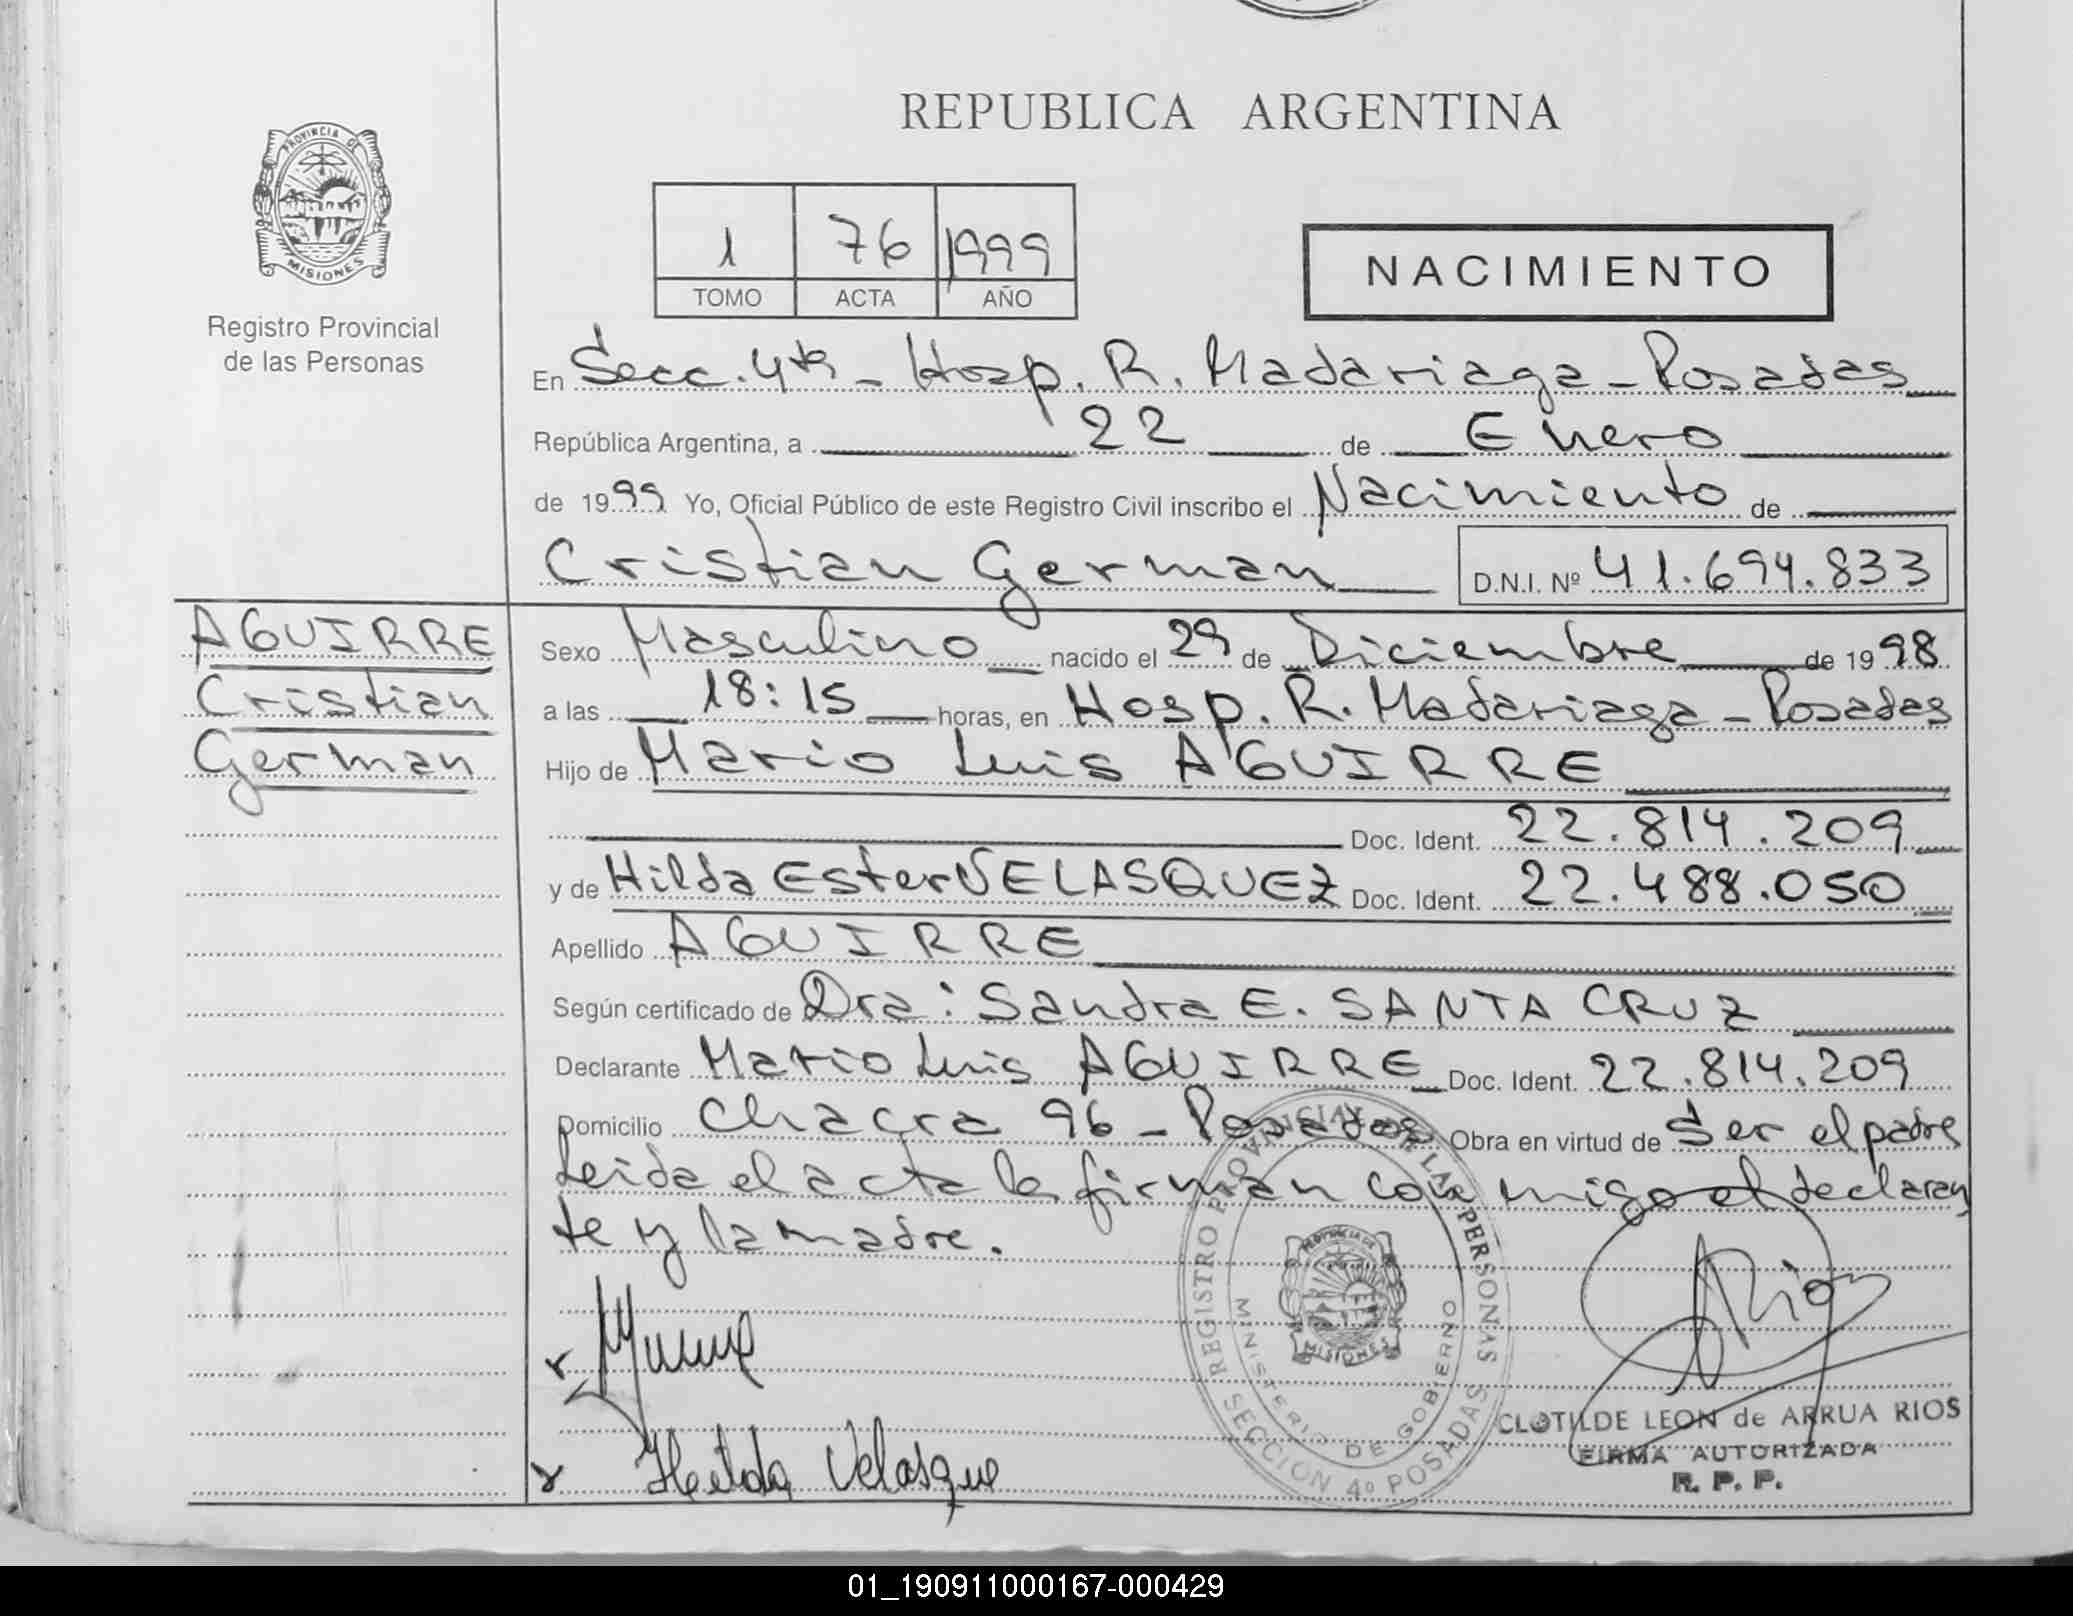 REPUBLICA ARGENTINA
PROVINCIA DE
MISIONES
Registro Provincial
de las Personas
1 76 1999
TOMO ACTA AÑO
NACIMIENTO
En Secc. 4ta - Hosp. R. Madariaga - Posadas
República Argentina, a 22 de Enero
de 1999 Yo, Oficial Público de este Registro Civil inscribo el Nacimiento de
Cristian German D.N.I. Nº 41.694.833
AGUIRRE
Cristian
German
Sexo Masculino nacido el 29 de Diciembre de 1998
a las 18:15 horas, en Hosp. R. Madariaga - Posadas
Hijo de Mario Luis AGUIRRE
Doc. Ident. 22.814.209
y de Hilda Ester VELASQUEZ Doc. Ident. 22.488.050
Apellido AGUIRRE
Según certificado de Dra: Sandra E. SANTA CRUZ
Declarante Mario Luis AGUIRRE Doc. Ident. 22.814.209
Domicilio Chacra 96 - Posadas Obra en virtud de Ser el padre
Leida el acta la firman con migo el declaran
te y la madre.
REGISTRO PROVINCIAL DE LAS PERSONAS
SECCION 4º POSADAS
MINISTERIO DE GOBIERNO
PROVINCIA DE
MISIONES
Rios
CLOTILDE LEON de ARRUA RIOS
FIRMA AUTORIZADA
R. P. P.
Heilda Velasque
01_190911000167-000429